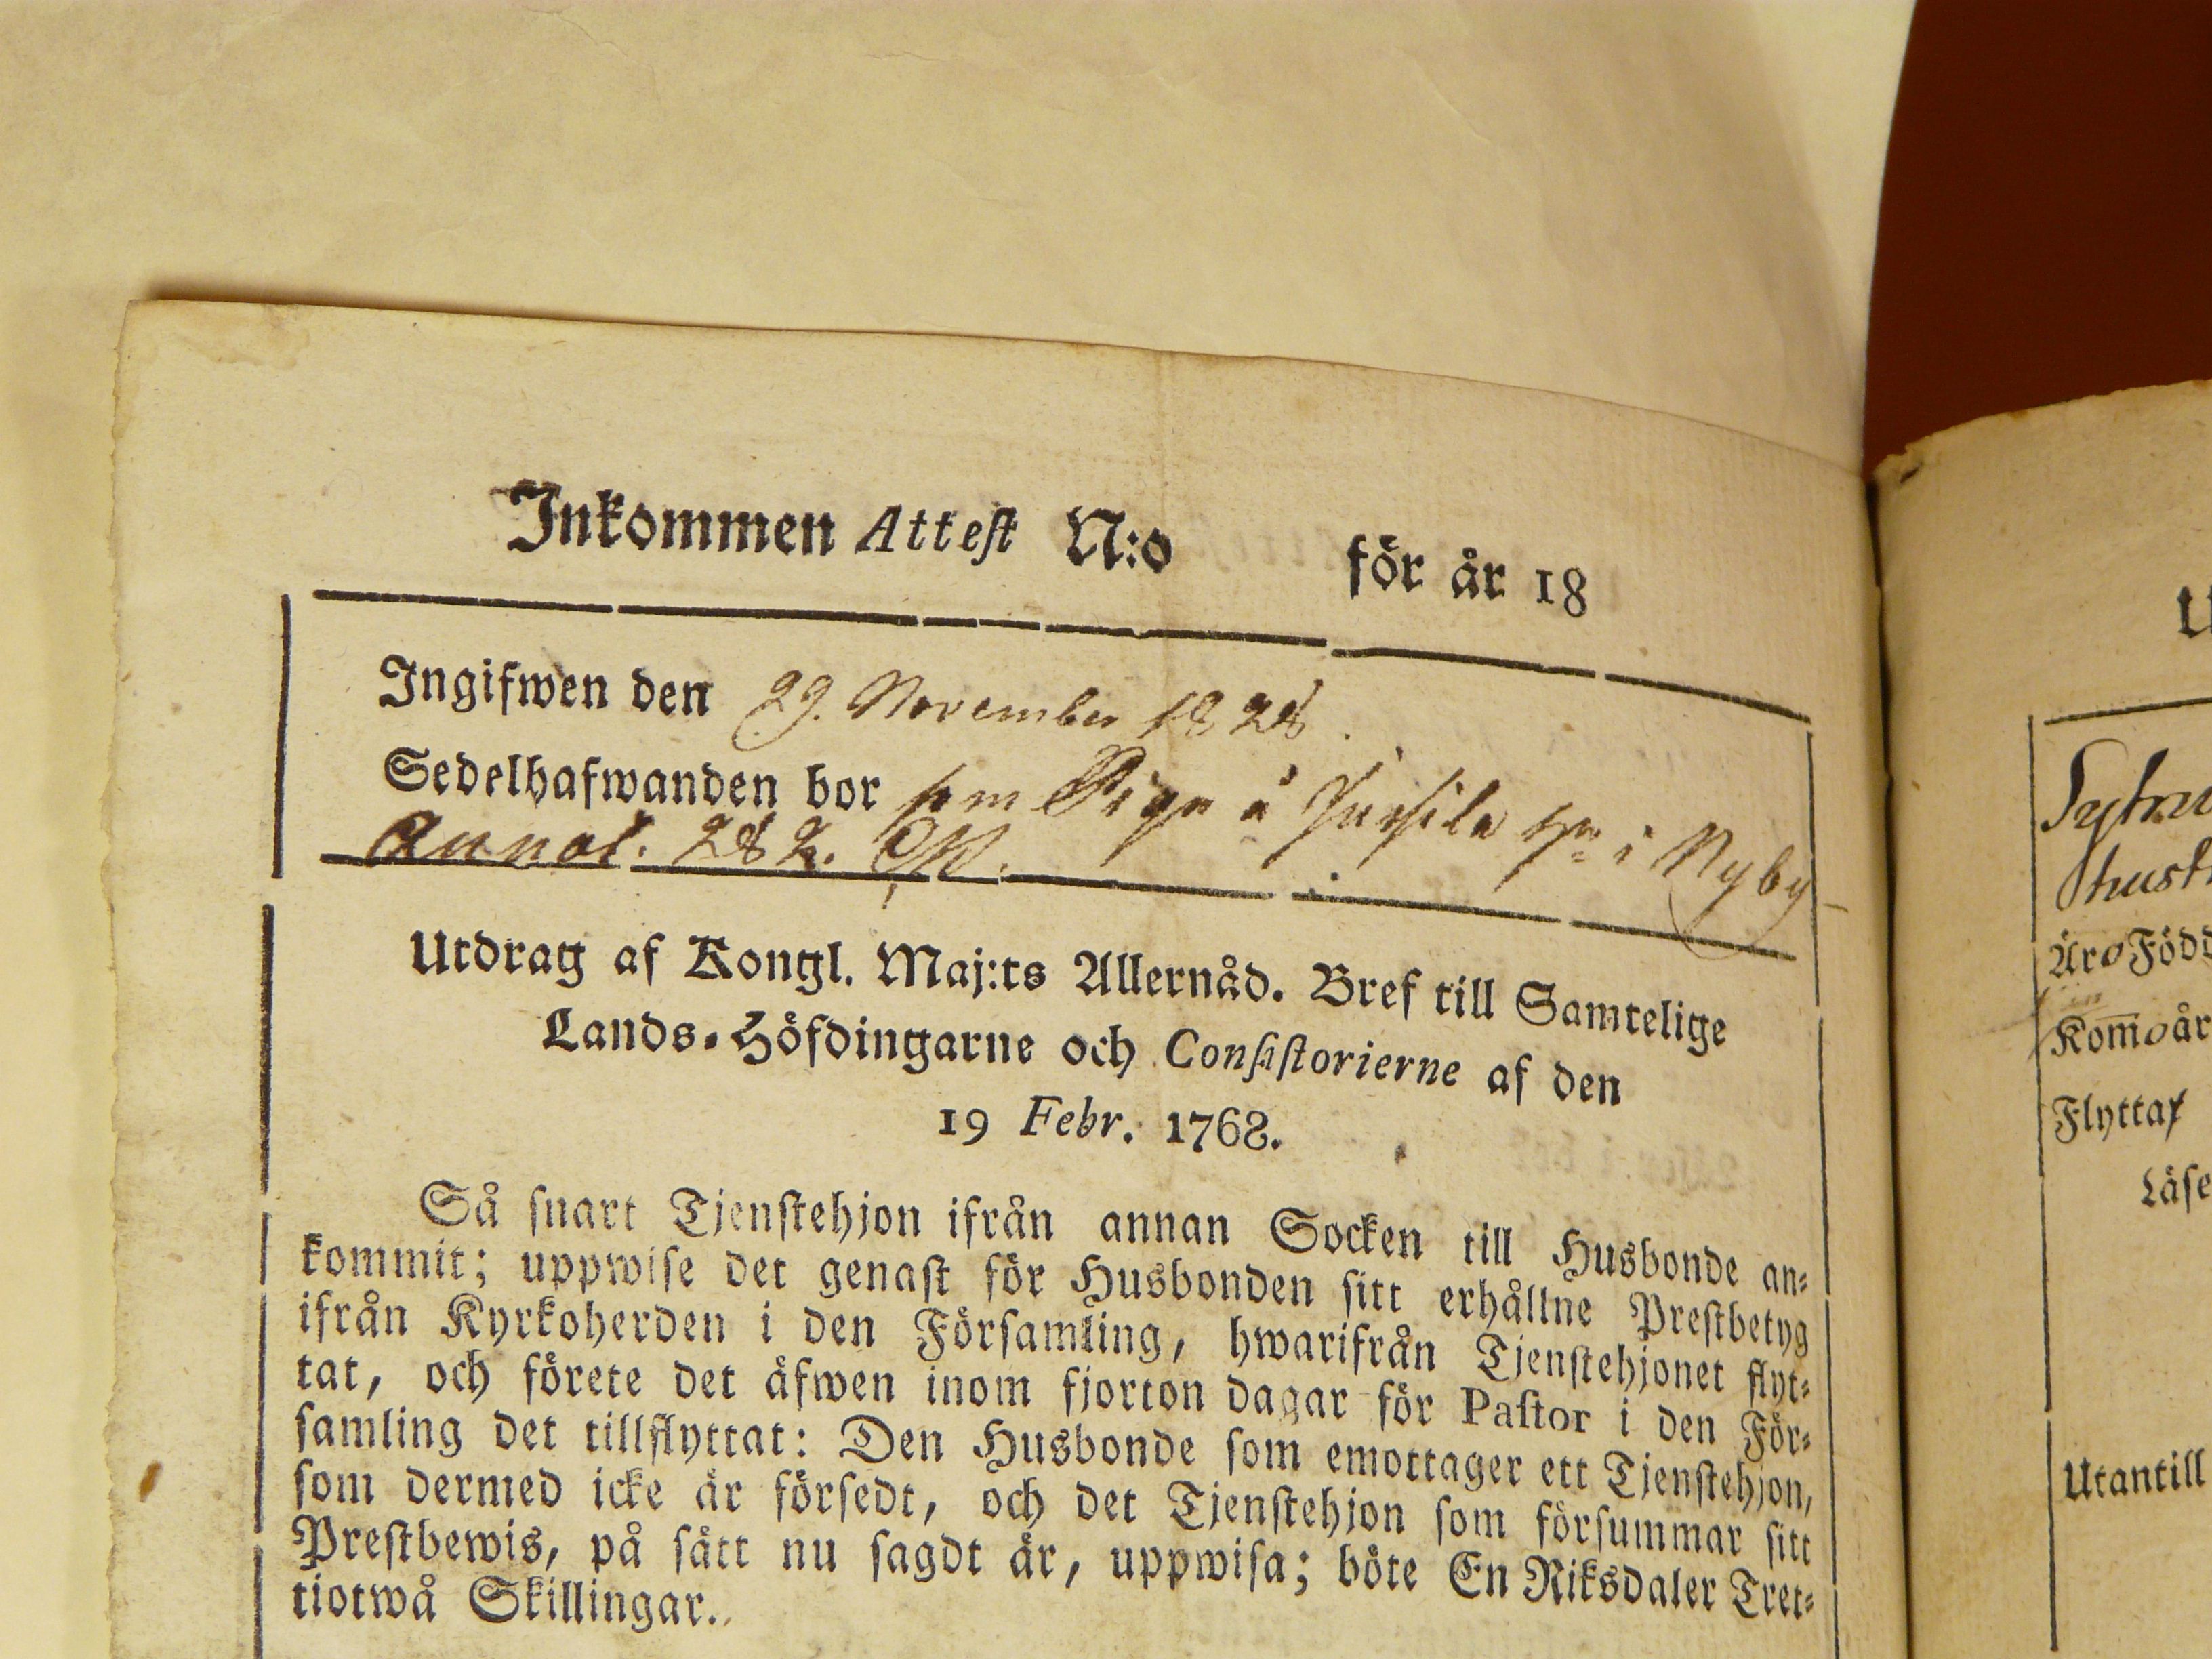 Inkommen Attest N:o för år 18
Ingifwen den 29. November 1828.
Sedelhafwanden bor som Piga å i Nyby
Annot. 282.
Utdrag af Kongl. Maj:ts Allernåd. Bref till Samtelige
Lands-Höfdingarne och Consistorierne af den
19 Febr. 1768.
Så snart Tjenstehjon ifrån annan Socken till Husbonde an-
kommit; uppwise det genast för Husbonden sitt erhållne Prestbetyg
ifrån Kyrkoherden i den Församling, hwarifrån Tjenstehjonet flyt-
tat, och förete det äfwen inom fjorton dagar för Pastor i den För-
samling det tillflyttat: Den Husbonde som emottager ett Tjenstehjon,
som dermed icke är försedt, och det Tjenstehjon som försummar sitt
Prestbewis, på sätt nu sagdt är, uppwisa; böte En Riksdaler Tret-
tiotwå Skillingar.
U
hustr
Äro Född
Kom̄o år
Flytta
Läse
Utantill